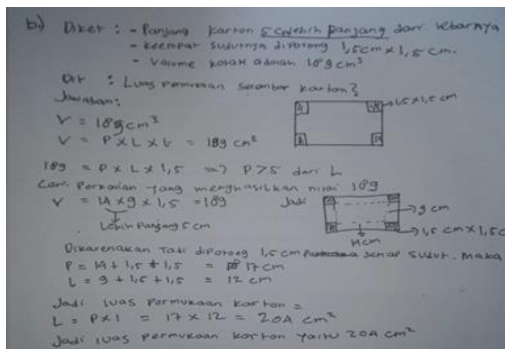 b.) Diket : - Panjang karton 5 cm lebih panjang dari lebarnya
- keempat sudutnya dipotong 1,5 cm x 1,5 cm.
- Volume kotak adalah 189 cm³
Dit : Luas permukaan selembar karton?
Jawaban:
1,5 x 1,5 cm
V = 189 cm³
V = P x L x t = 189 cm³
189 = P x L x 1,5 => P > 5 dari L
Cari Perkalian yang menghasilkan nilai 189
V = 14 x 9 x 1,5 = 189 Jadi
9 cm
Lebih Panjang 5 cm
1,5 cm x 1,5 c
14 cm
Dikarenakan Tadi dipotong 1,5 cm setiap sudut. Maka
P = 14 + 1,5 + 1,5 = 17 cm
L = 9 + 1,5 + 1,5 = 12 cm
Jadi luas permukaan karton =
L = P x l = 17 x 12 = 204 cm²
Jadi luas permukaan karton yaitu 204 cm²